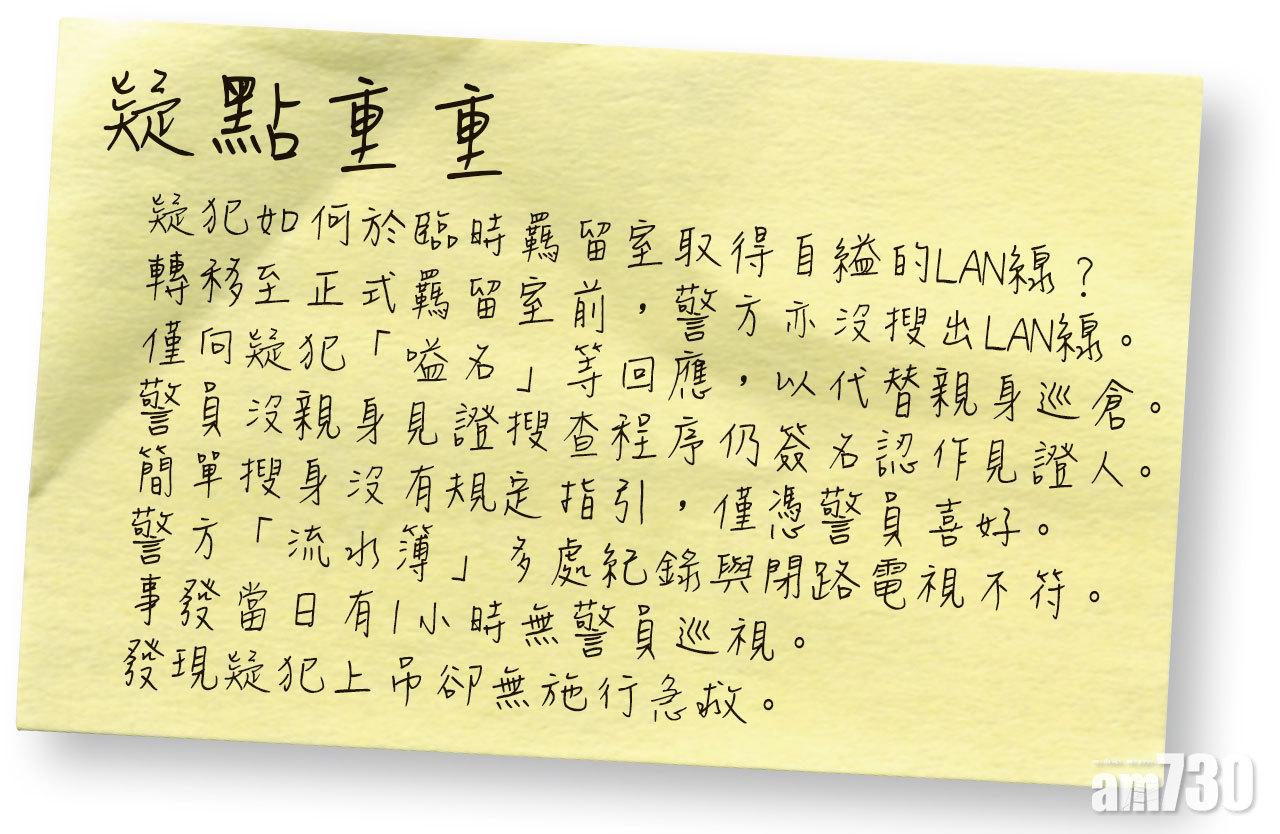 疑點重重
疑犯如何於臨時羈留室取得自縊的LAN線？
轉移至正式羈留室前，警方亦沒搜出LAN線。
僅向疑犯「嗌名」等回應，以代替親身巡倉。
警員沒親身見證搜查程序仍簽名認作見證人。
簡單搜身沒有規定指引，僅憑警員喜好。
警方「流水簿」多處紀錄與閉路電視不符。
事發當日有1小時無警員巡視。
發現疑犯上吊卻無施行急救。
am730